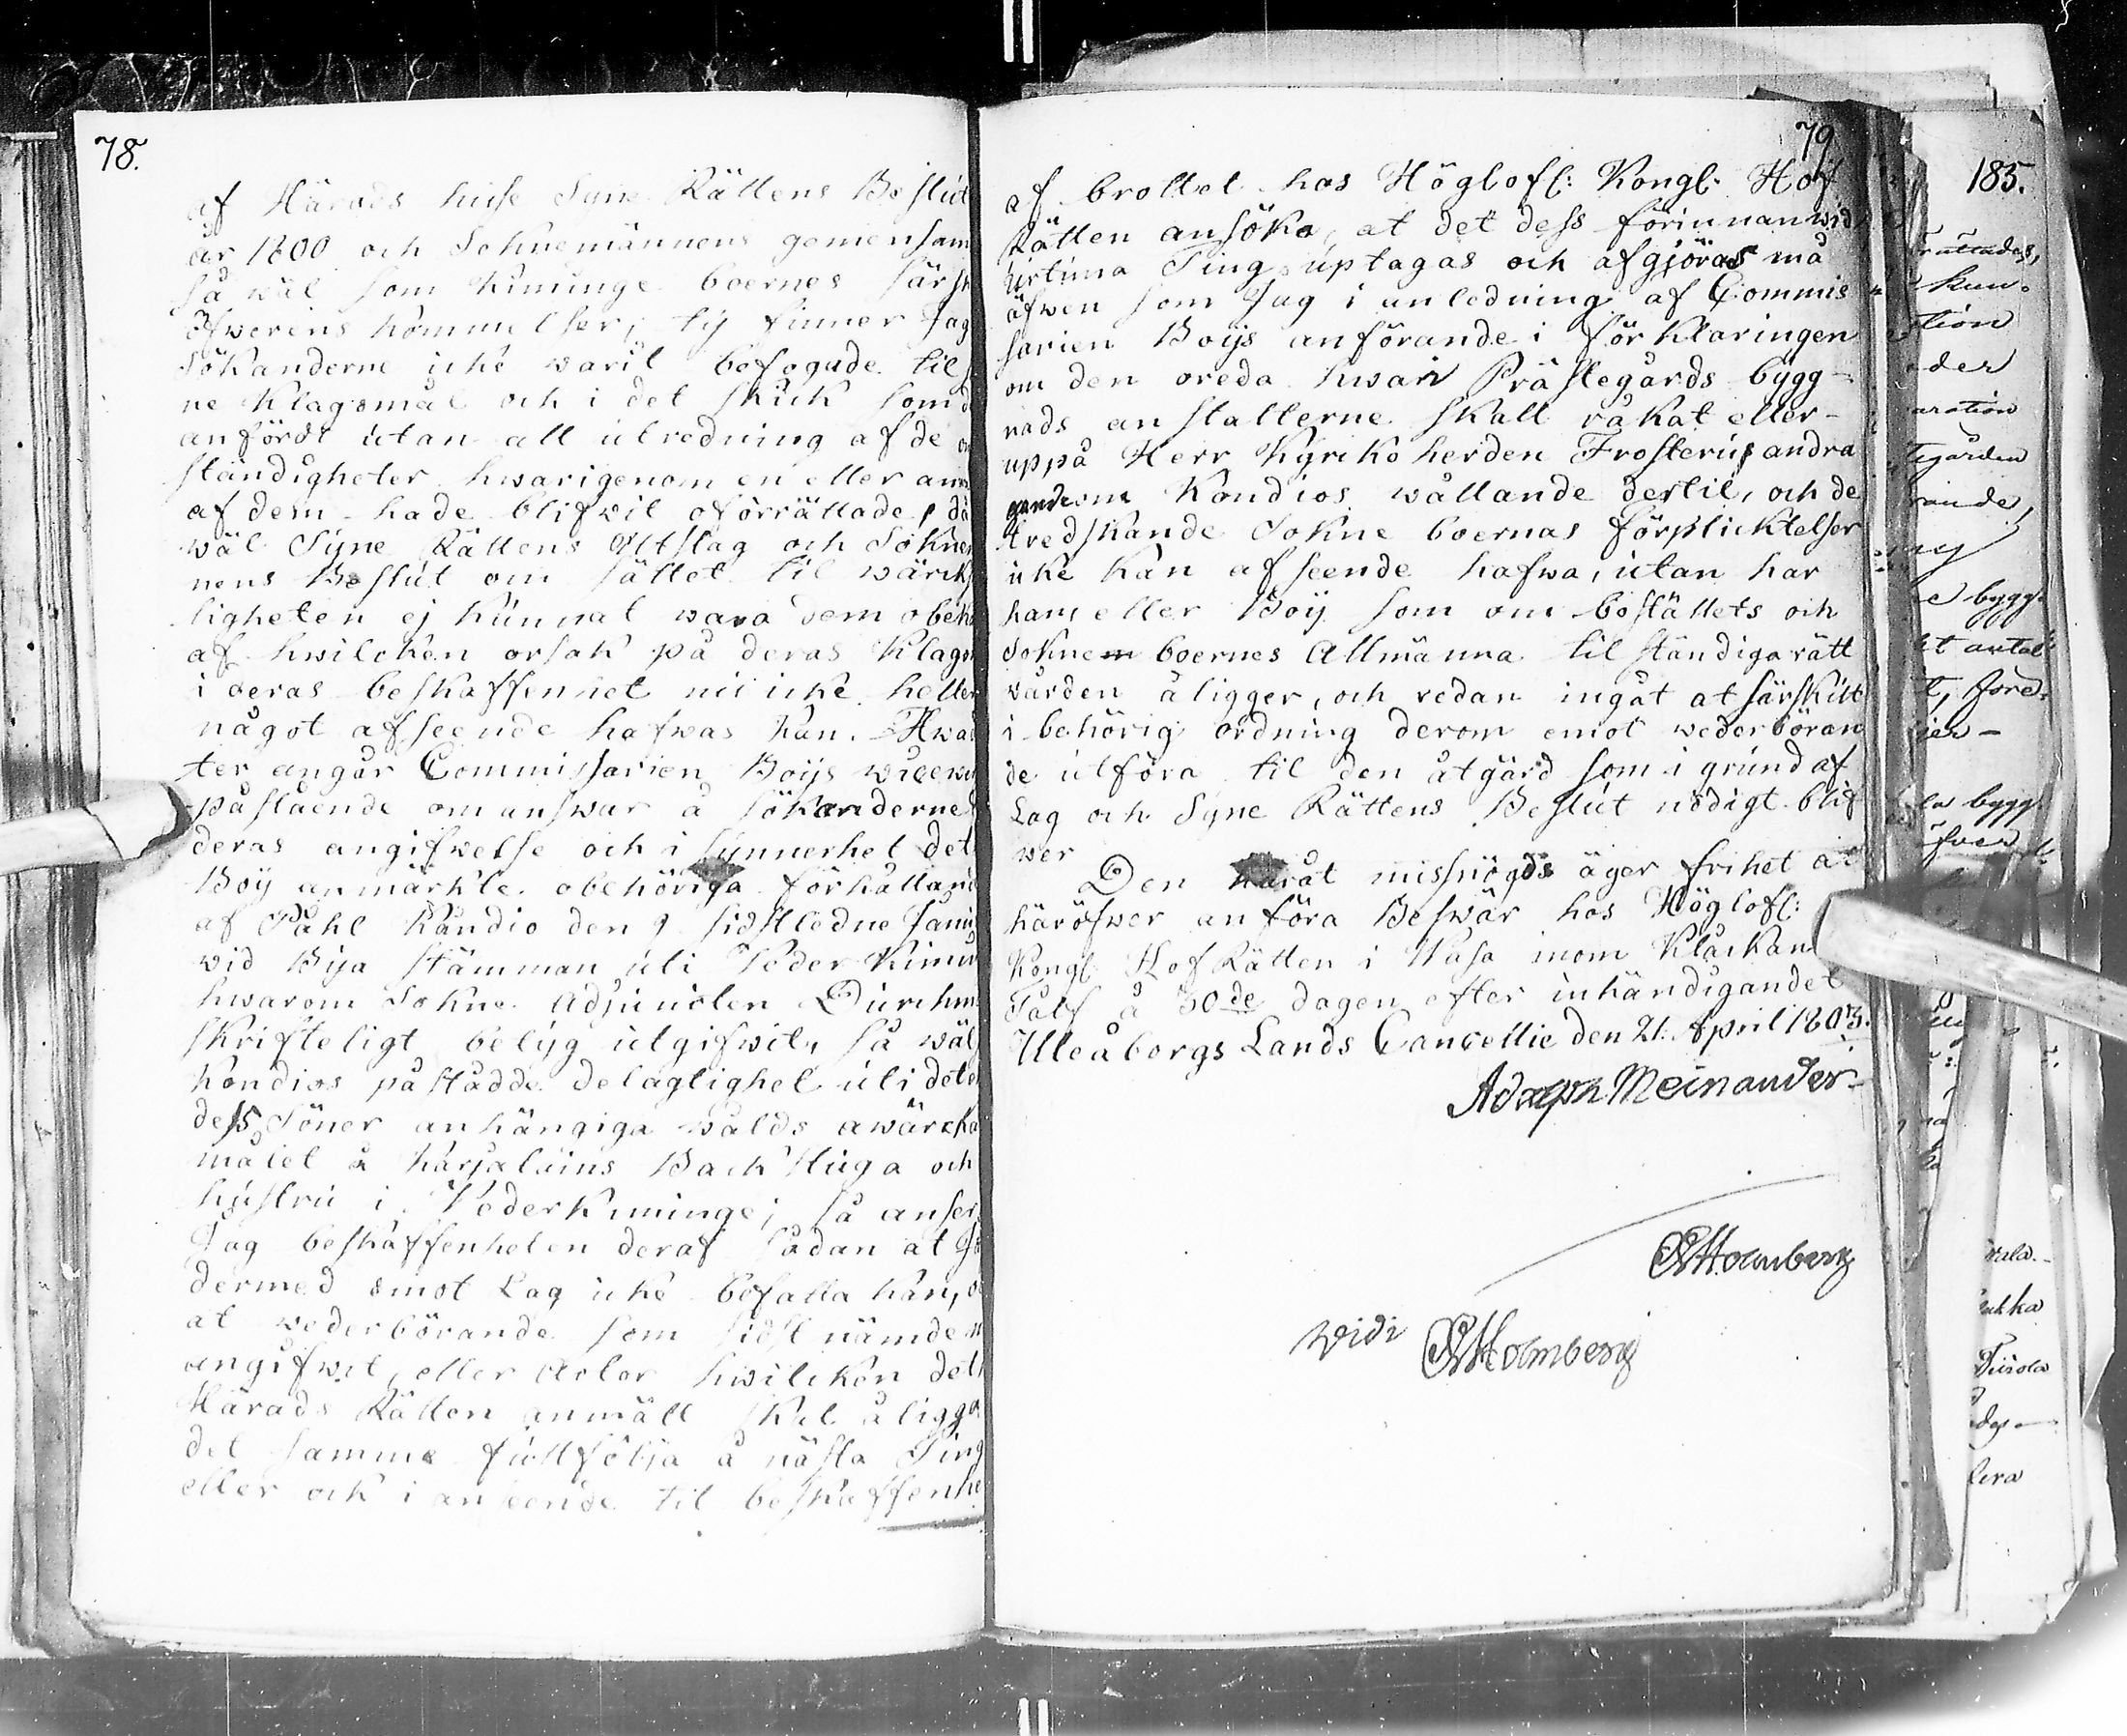 78.
af Härads huse Syne Rättens Beslut
år 1800 och Soknemännens gemensam
så wäl som Kiminge boernes särsk
öfwerens kommelser; ty finner Jag
Sökanderne icke warit befogade til
ne Klagomål och i det skick som d
anfördt utan all utredning af de
ständigheter hwarigenom en eller an
af dem hade blifwit oförrättade, då
wäl Syne Rättens Utslag och Sokne
nens Beslut om sättet til wärcks
ligheten ej kunnat wara dem obek
af hwilcken orsak på deras Klago
i deras beskaffenhet nu icke heller
något afseende hafwas kan. Hwa
ter angår Commissarien Boijs
påstående om answar å Sökanderne
deras angifwelse och i synnerhet det
Boij anmärkte obehöriga förhålland
af Påhl Kandio den 9 sidstledne Janu
wid Bya stämman uti Yoder Kimin
hwarom Sokne Adjuncten Durchm
skrifteligt betyg utgifwit, så wäl
Kondios påstådde delaglighet uti det
dess Söner anhängiga wålds awärcka
målet å Karjalains Back Stuga och
hustru i Yoderkiminge; så anser
Jag beskaffenheten deraf sådan at Ja
dermed emot Lag icke befatta kan,
at wederbörande som sidst nämde
angifwit, eller Actor hwilcken det
Härads Rätten anmält skal åligga
det samma fullfölja å nästa Ting
eller ock i anseende til beskaffenhe
79
af brottet hos Höglofl: Kongl. Hof
Rätten ansöka, at det dess förinnan wid
Urtima Ting uptagas och afgjöras må
äfwen som Jag i anledning af Commis
sarien Boijs anförande i förklaringen
om den oreda hwari Prästegårds bygg-
nads anstalterne skall råkat eller
uppå Herr Kyrkoherden Frosterus andra
gande om Kondios wållande dertil, och de
tredskande Sokne boernas förplicktelser
icke kan afseende hafwa, utan har
han eller Boij som om boställets och
Sokne boernes Allmänna til ständiga rätt
wården åligger, och redan ingåt at särskilt
i behörig ordning derom emot wederböran
de utföra til den åtgärd som i grund af
Lag och Syne Rättens Beslut nödigt blif
wer
Den häråt missnögds äger frihet at
häröfwer anföra Beswär hos Höglofl:
Kongl. Hof Rätten i Wasa inom Klåckan
Tolf å 30de dagen efter inhändigandet
Uleåborgs Lands Cancellie den 21. April 1803.
Adolph Meinander
Holmberg
Vidi Holmberg
185.